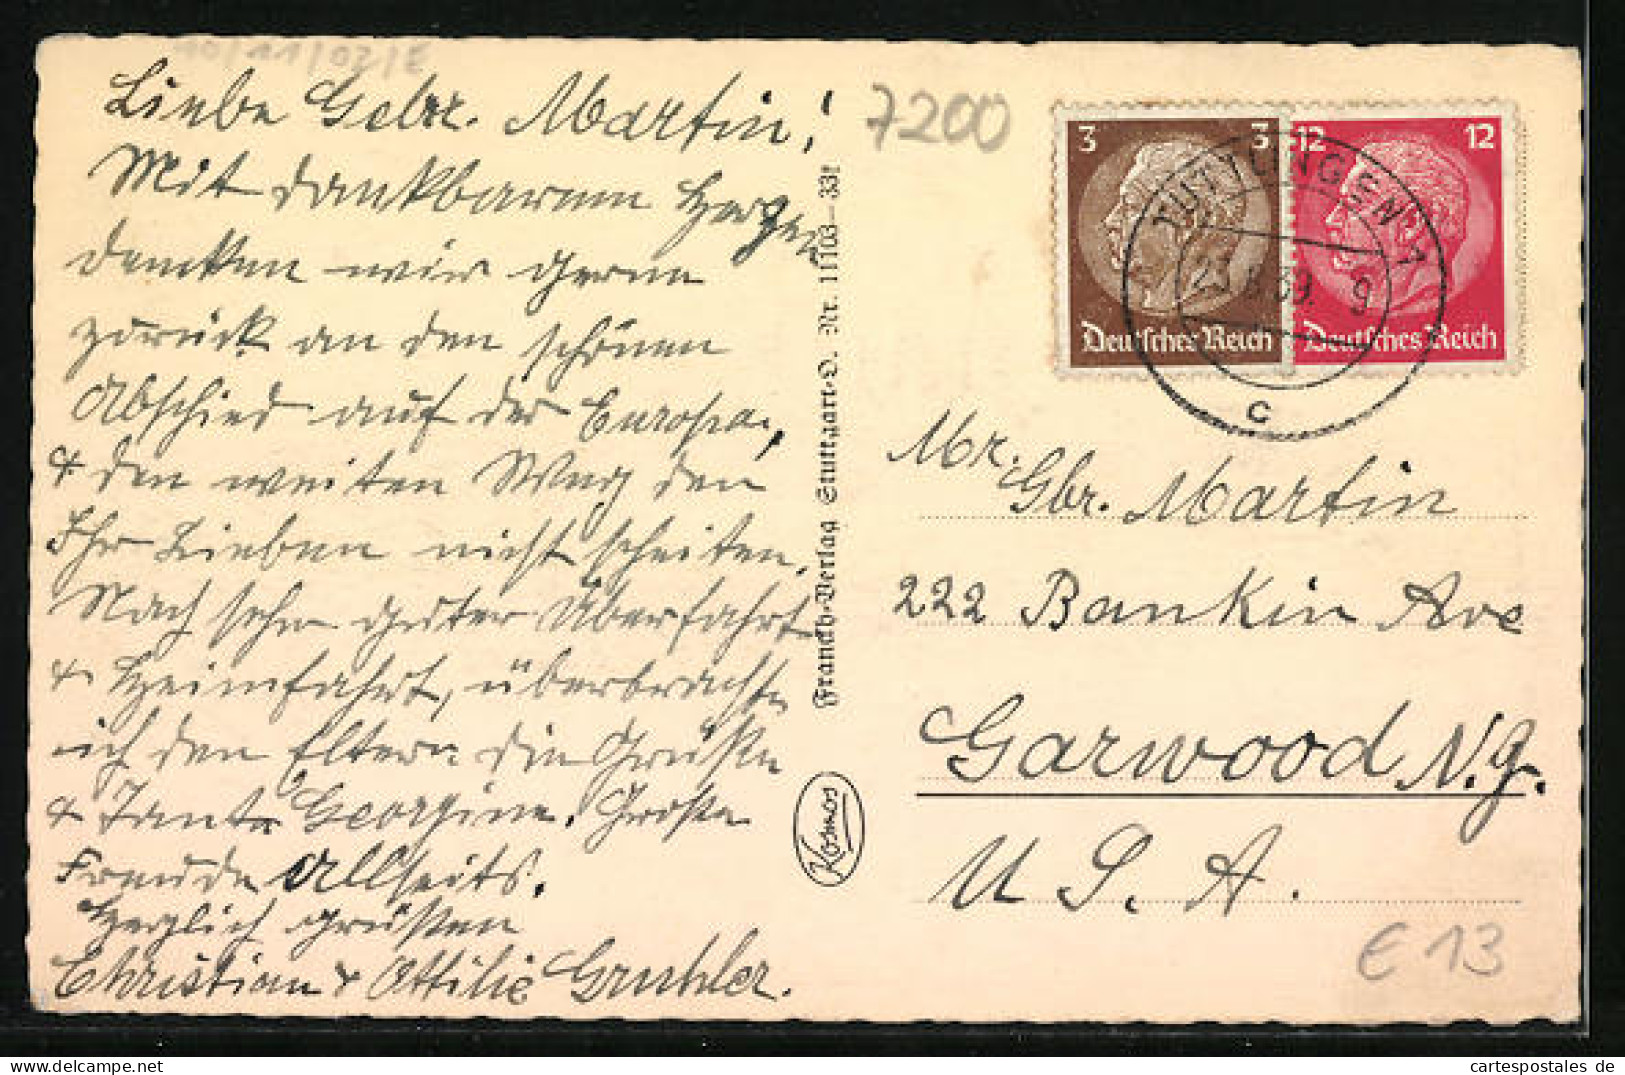 10/11/02/E
Liebe Gebr. Martin!
Mit dankbarem Herzen
denken wir gerne
zurück an den schönen
Abschied auf der Europa,
& den weiten Weg den
Ihr Lieben nicht scheiten.
Nach sehr guter Überfahrt
& Heimfahrt, überbrachte
ich den Eltern die Grüße
& Tante Georgine. Große
Freude Allseits.
Herzlich grüßen
Christian & Ottilie Gruhler.
Franckh-Verlag Stuttgart-O. Nr. 11103—33t
Kosmos
7200
3 3
Deutsches Reich
12 12
Deutsches Reich
TUTTLINGEN 1
39. 9
c
Mr. Gbr. Martin
222 Bankin Ave
Garwood N.J.
U.S.A.
€ 13
cartespostales de